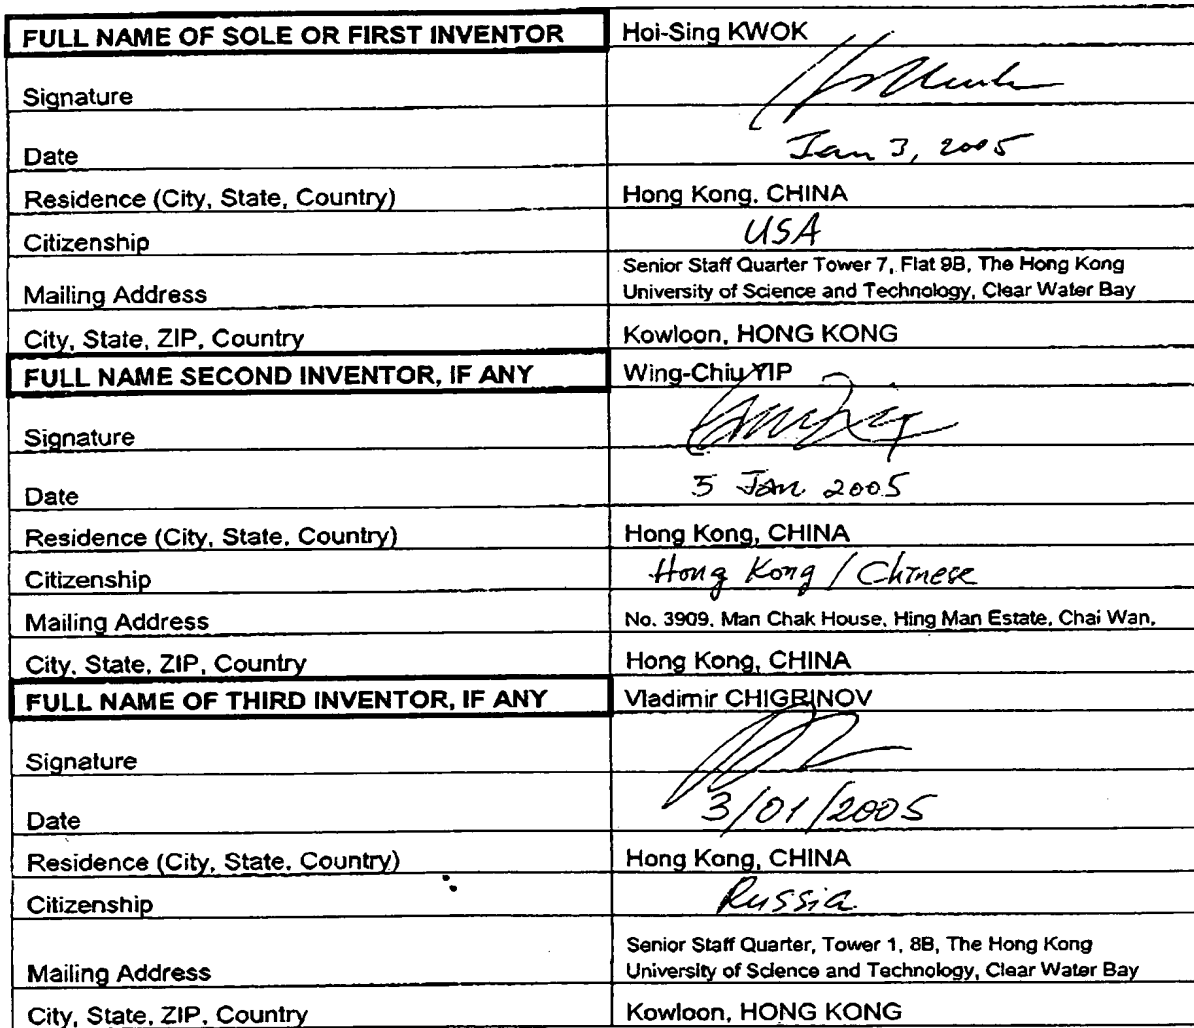 FULL NAME OF SOLE OR FIRST INVENTOR Hoi-Sing KWOK
Signature
Date Jan 3, 2005
Residence (City, State, Country) Hong Kong, CHINA
Citizenship USA
Mailing Address Senior Staff Quarter Tower 7, Flat 9B, The Hong Kong
University of Science and Technology, Clear Water Bay
City, State, ZIP, Country Kowloon, HONG KONG
FULL NAME SECOND INVENTOR, IF ANY Wing-Chiu YIP
Signature
Date 5 Jan 2005
Residence (City, State, Country) Hong Kong, CHINA
Citizenship Hong Kong / Chinese
Mailing Address No. 3909, Man Chak House, Hing Man Estate, Chai Wan,
City, State, ZIP, Country Hong Kong, CHINA
FULL NAME OF THIRD INVENTOR, IF ANY Vladimir CHIGRINOV
Signature
Date 3/01/2005
Residence (City, State, Country) Hong Kong, CHINA
Citizenship Russia
Mailing Address Senior Staff Quarter, Tower 1, 8B, The Hong Kong
University of Science and Technology, Clear Water Bay
City, State, ZIP, Country Kowloon, HONG KONG